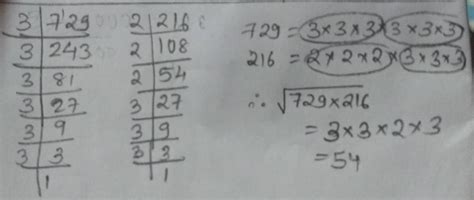 3 | 729
3 | 243
3 | 81
3 | 27
3 | 9
3 | 3
| 1
2 | 216
2 | 108
2 | 54
3 | 27
3 | 9
3 | 3
| 1
729 = 3×3×3×3×3×3
216 = 2×2×2×3×3×3
∴ √729×216
= 3×3×2×3
= 54